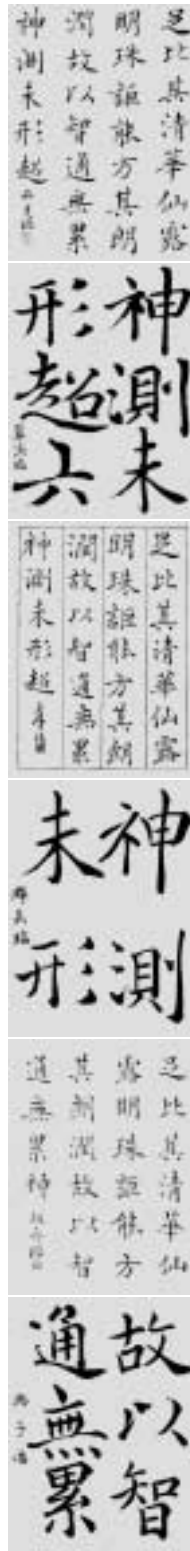 足比其清華仙露
明珠詎能方其朗
潤故以智通無累
神測未形超
神測未
形超六
足比其清華仙露
明珠詎能方其朗
潤故以智通無累
神測未形超
神測
未形
足比其清華仙
露明珠詎能方
其朗潤故以智
通無累神
故以智
通無累